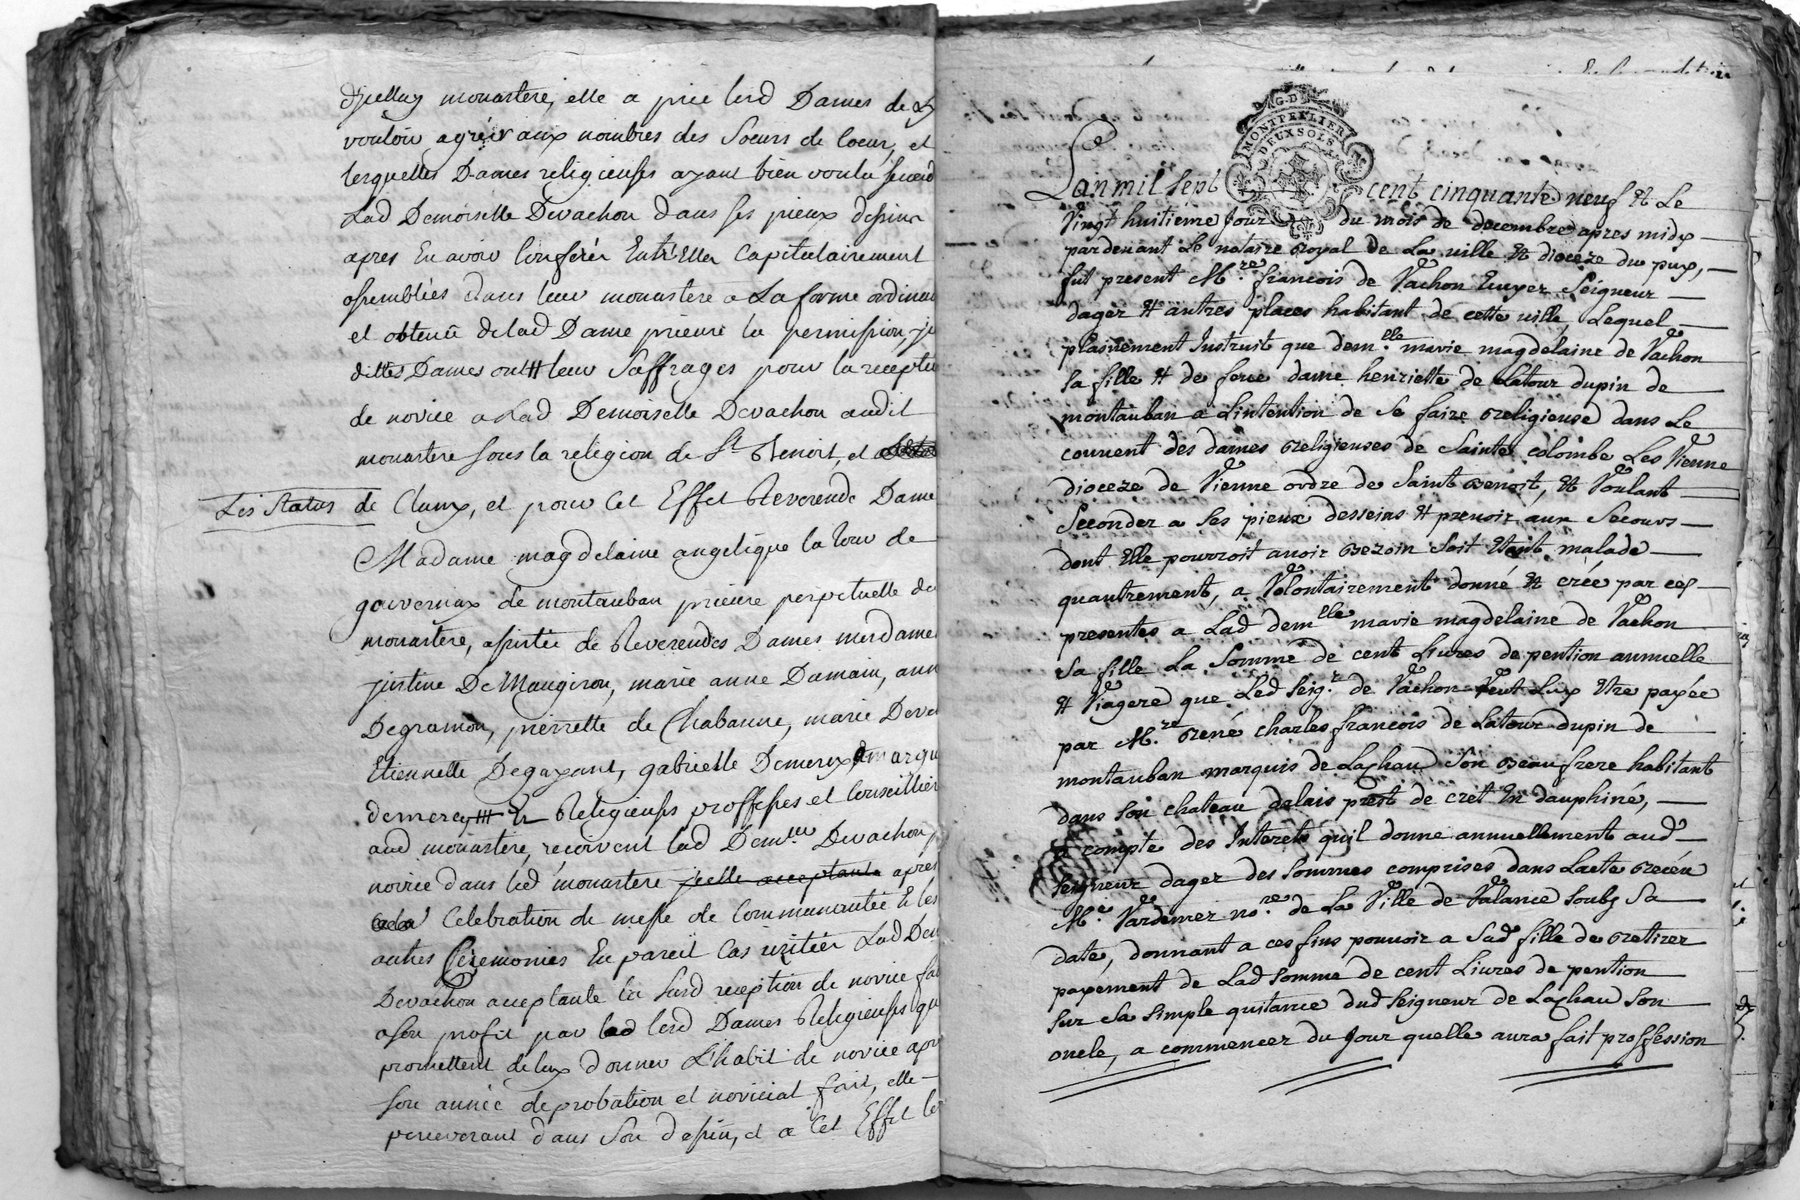 monastere, elle a prié lesd Dames de
vouloir agréer aux nombres des Soeurs de Coeur, et
lesquelles Dames religieuses ayant bien voulu
Lad Demoiselle Devachon dans ses pieux dessins
apres En avoir Conferéé Entr'Elles Capitulairement
assemblées dans leur monastere a La forme
et obtenu de lad Dame prieure la permission,
dittes Dames ont leur Suffrages pour la
de novice a Lad Demoiselle Devachon audit
monastere sous la religion de St Benoit, et
Les Status de Cluny, et pour Cet Effet Reverende Dame
Madame magdelaine angelique la Tour de
gouvernax de montauban prieure perpetuelle du
monastere, assistée de Reverendes Dames
justine De Maugiron, marie anne Damain,
Degramon, pierrette de Chabanne, marie
Etiennette Degayant, gabrielle Demerey,
demerey Religieuses proffesses et
aud monastere, reçoivent lad Demlle Devachon
novice dans led monastere jcelle acceptante apres
Celebration de messe de Communauteé & les
autres Ceremonies En pareil Cas usitéés Lad
Devachon acceptante la susd reception de novice
a son profit par lesd Dames Religieuses
promettent de luy donner L'habit de novice
son année de probation et noviciat fait, elle
perseverant dans Son dessin, et a Cet Effet
G.D
MONTPELLIER
DEUX SOLS
Lan mil sept cent cinquante neuf Et Le
Vingt huitieme jour du mois de decembre apres midy
pardevant Le notaire Royal de La ville Et dioceze du puy,
fut present Mre francois de Vachon Ecuyer Seigneur
dager Et autres places habitant de cette ville, Lequel
plainement Instruit que demlle marie magdelaine de Vachon
sa fille Et de feue dame henriette de Latour dupin de
montauban a Lintention de Se faire Religieuse dans Le
couvent des dames Religieuses de Sainte colombe Les Vienne
dioceze de Vienne ordre de Saint Benoit, Et Voulant
Seconder a Ses pieux desseins Et prevoir aux Secours
dont Elle pourroit avoir Bezoin Soit Etant malade
quautrement, a Volontairement donné Et créé par ces
presentes a Lad demlle marie magdelaine de Vachon
Sa fille La Somme de cent Livres de pention annuelle
Et Viagere que Led Seigr de Vachon Veut Luy Etre payée
par Mre René charles francois de Latour dupin de
montauban marquis de Lachau Son Beau frere habitant
dans son chateau prest de cret En dauphiné,
a compte des Interets quil donne annuellement aud
Seigneur dager des Sommes comprises dans Lacte
Me nore de La Ville de Valance Soubs Sa
date, donnant a ces fins pouvoir a Sad fille de Retirer
payement de Lad Somme de cent Livres de pention
Sur Sa Simple quitance dud Seigneur de Lachau Son
oncle, a commencer du Jour quelle aura fait proffession